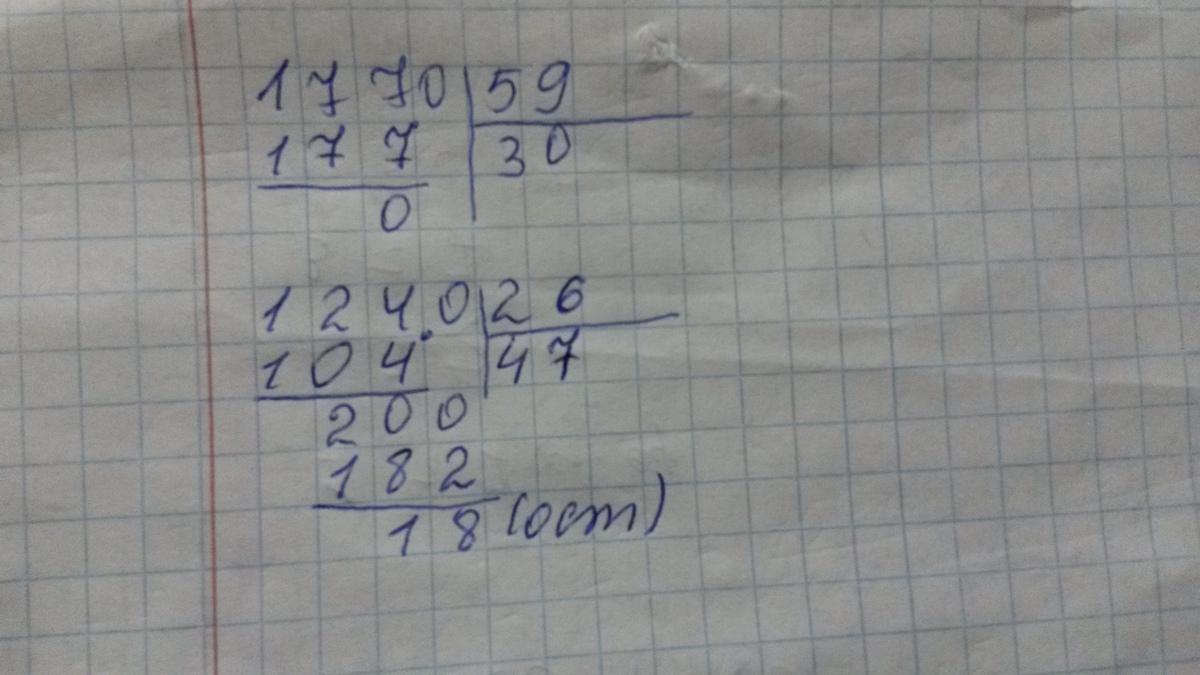 1770 59
177 30
0
1240 26
104 47
200
182
18 (ост)